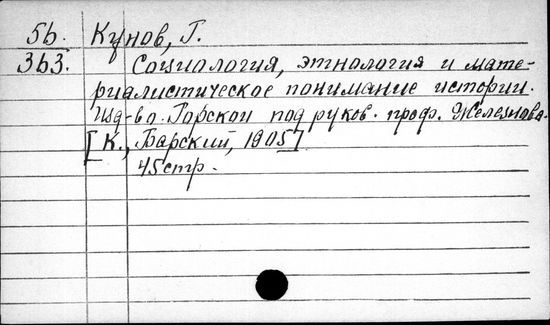 5б. Кунов, Г.
363. Социология, этнология и мате-
риалистическое понимание истории.
Изд-во. Горской под руков. проф. Железнова.
[К., Барский, 1905].
45 стр.